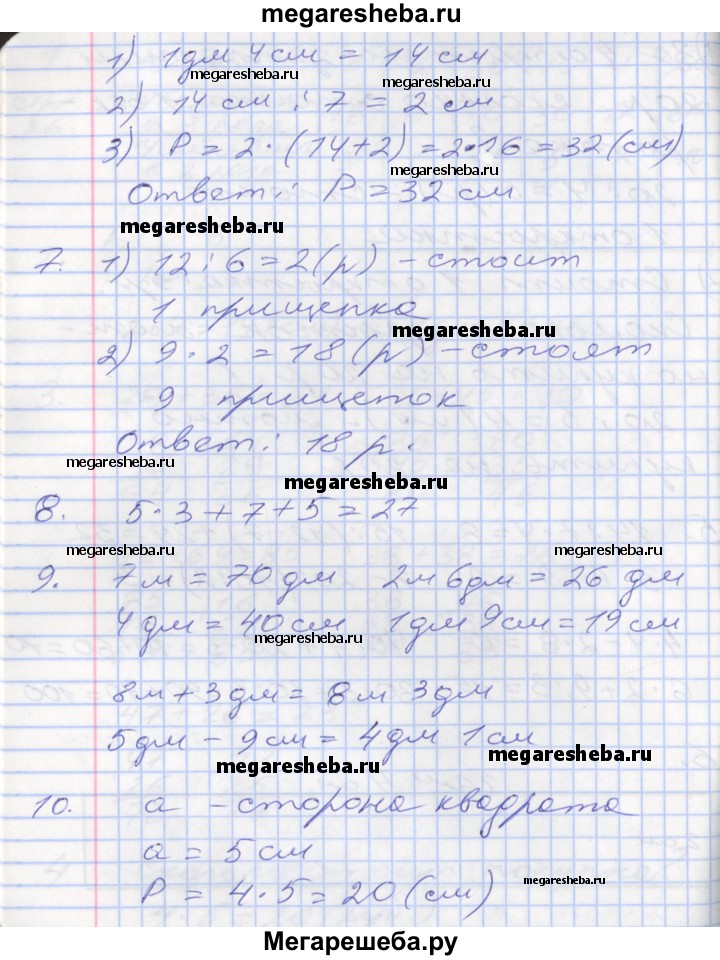 megaresheba.ru
1) 1 дм 4 см = 14 см
megaresheba.ru megaresheba.ru
2) 14 см : 7 = 2 см
3) P = 2 · (14+2) = 2·16 = 32 (см)
megaresheba.ru megaresheba.ru
Ответ: P = 32 см
megaresheba.ru
7. 1) 12 : 6 = 2 (р) - стоит
megaresheba.ru
1 прищепка
megaresheba.ru
2) 9 · 2 = 18 (р) - стоят
9 прищеток
Ответ: 18 р.
megaresheba.ru
megaresheba.ru
8. 5·3+7+5=27
megaresheba.ru megaresheba.ru
9. 7 м = 70 дм 2 м 6 дм = 26 дм
4 дм = 40 см 1 дм 9 см = 19 см
megaresheba.ru
8 м + 3 дм = 8 м 3 дм
5 дм - 9 см = 4 дм 1 см
megaresheba.ru megaresheba.ru
10. a - сторона квадрата
a = 5 см
P = 4·5 = 20 (см)
megaresheba.ru
Мегарешеба.ру